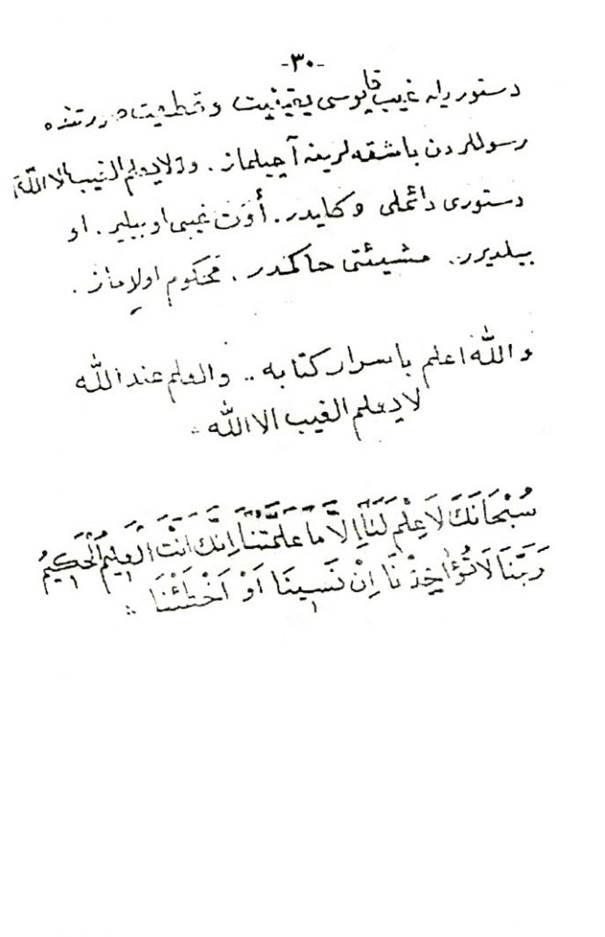 -٣٠-
دستوريله غيب قاپوسى يقينيت و قطعيت صورتنده
رسوللردن باشقه لرينه آچيلماز. و لايعلم الغيب الا الله
دستورى دائملى و كليدر. أوت غيبى او بيلير. او
بيلديرر.. مشيئتى حاكمدر. محكوم اولاماز.
والله اعلم باسرار كتابه .. والعلم عند الله
لايعلم الغيب الا الله
سُبْحَانَكَ لَا عِلْمَ لَنَا اِلَّا مَا عَلَّمْتَنَا اِنَّكَ اَنْتَ الْعَلِيمُ الْحَكِيمُ
رَبَّنَا لَا تُؤَاخِذْنَا اِنْ نَسِينَا اَوْ اَخْطَئْنَا